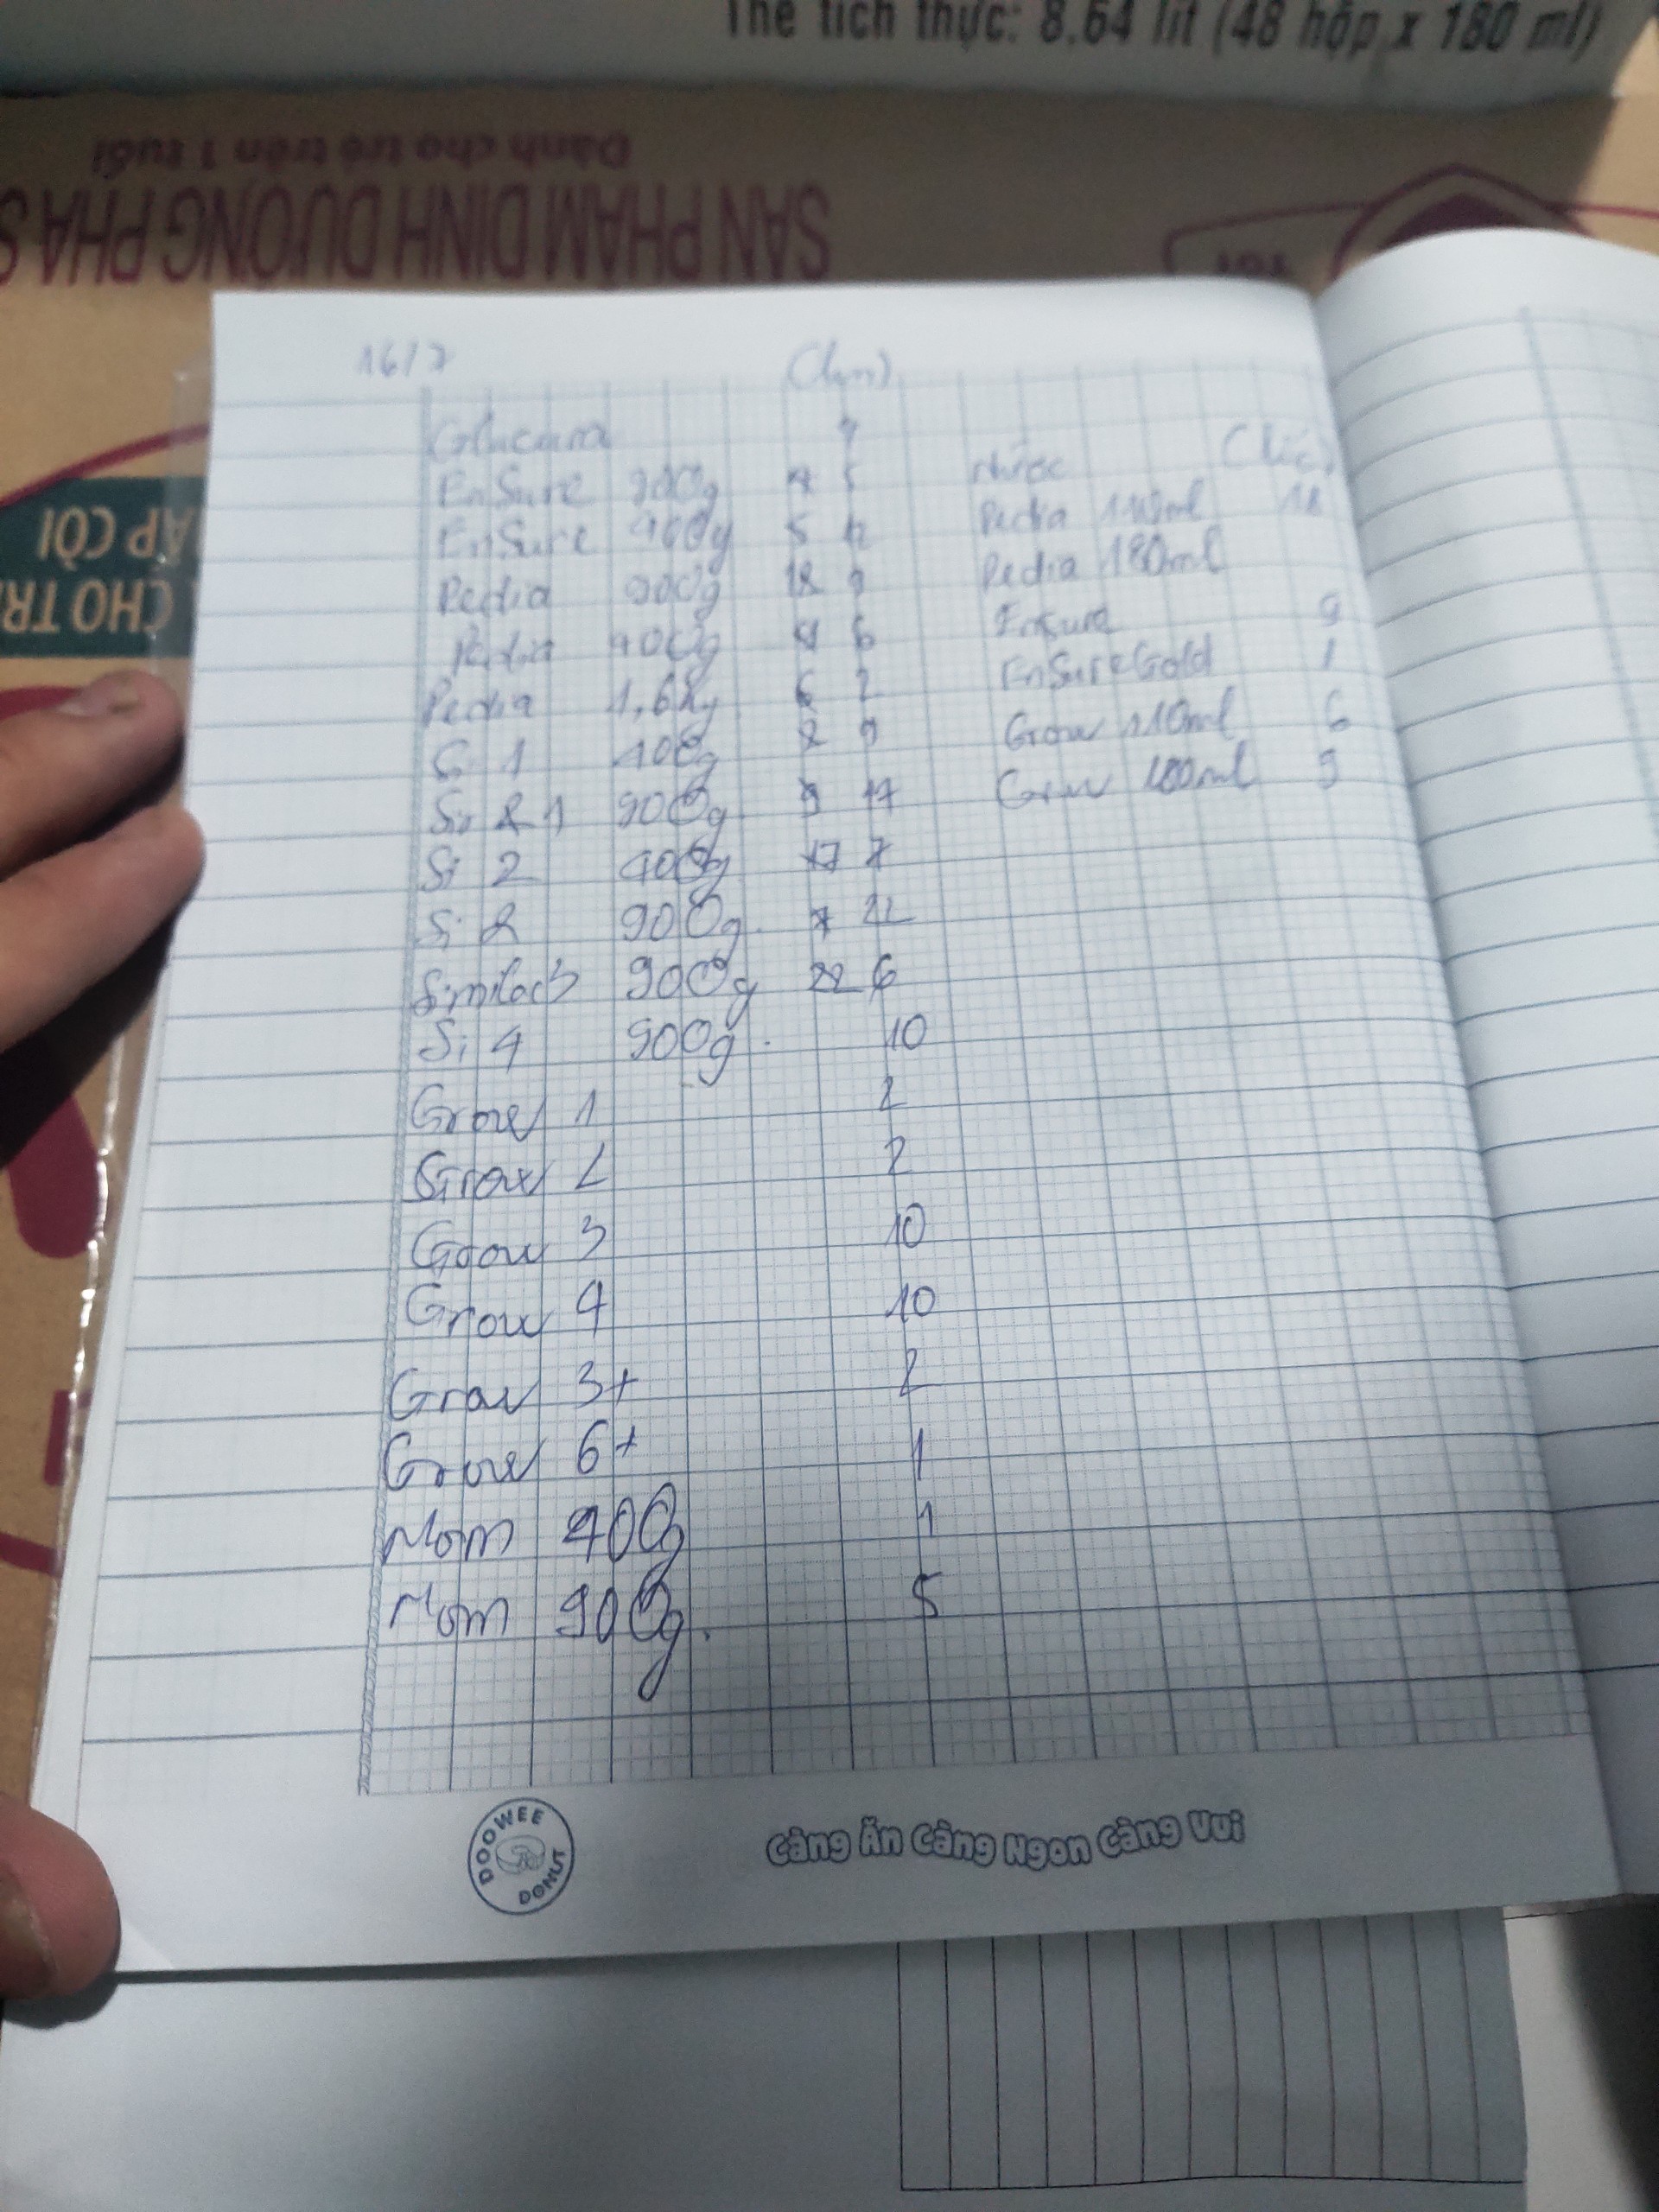 Thể tích thực: 8.64 lít (48 hộp x 180 ml)
Dành cho trẻ trên 1 tuổi
SẢN PHẨM DINH DƯỠNG PHA S
THẤP CÒI
CHO TR
16/7 (lon)
Glucerna 7
EnSure 900g 4 5
EnSure 400g 5 12
Pedia 900g 18 9
Pedia 400g 6
Pedia 1,6kg 6 2
Si 1 400g 2 9
Si 2 1 900g 9 17
Si 2 400g 17 7
Si 2 900g. 7 22
Similac 3 900g 22 6
Si 4 900g. 10
Grow 1 2
Grow 2 2
Grow 3 10
Grow 4 10
Grow 3+ 2
Grow 6+ 1
Mom 400g 1
Mom 900g. 5
Nước
Pedia 110ml 18
Pedia 180ml
Ensure 9
EnSure Gold 1
Grow 110ml 6
Grow 180ml 9
DOOWEE DONUT
Càng Ăn Càng Ngon Càng Vui